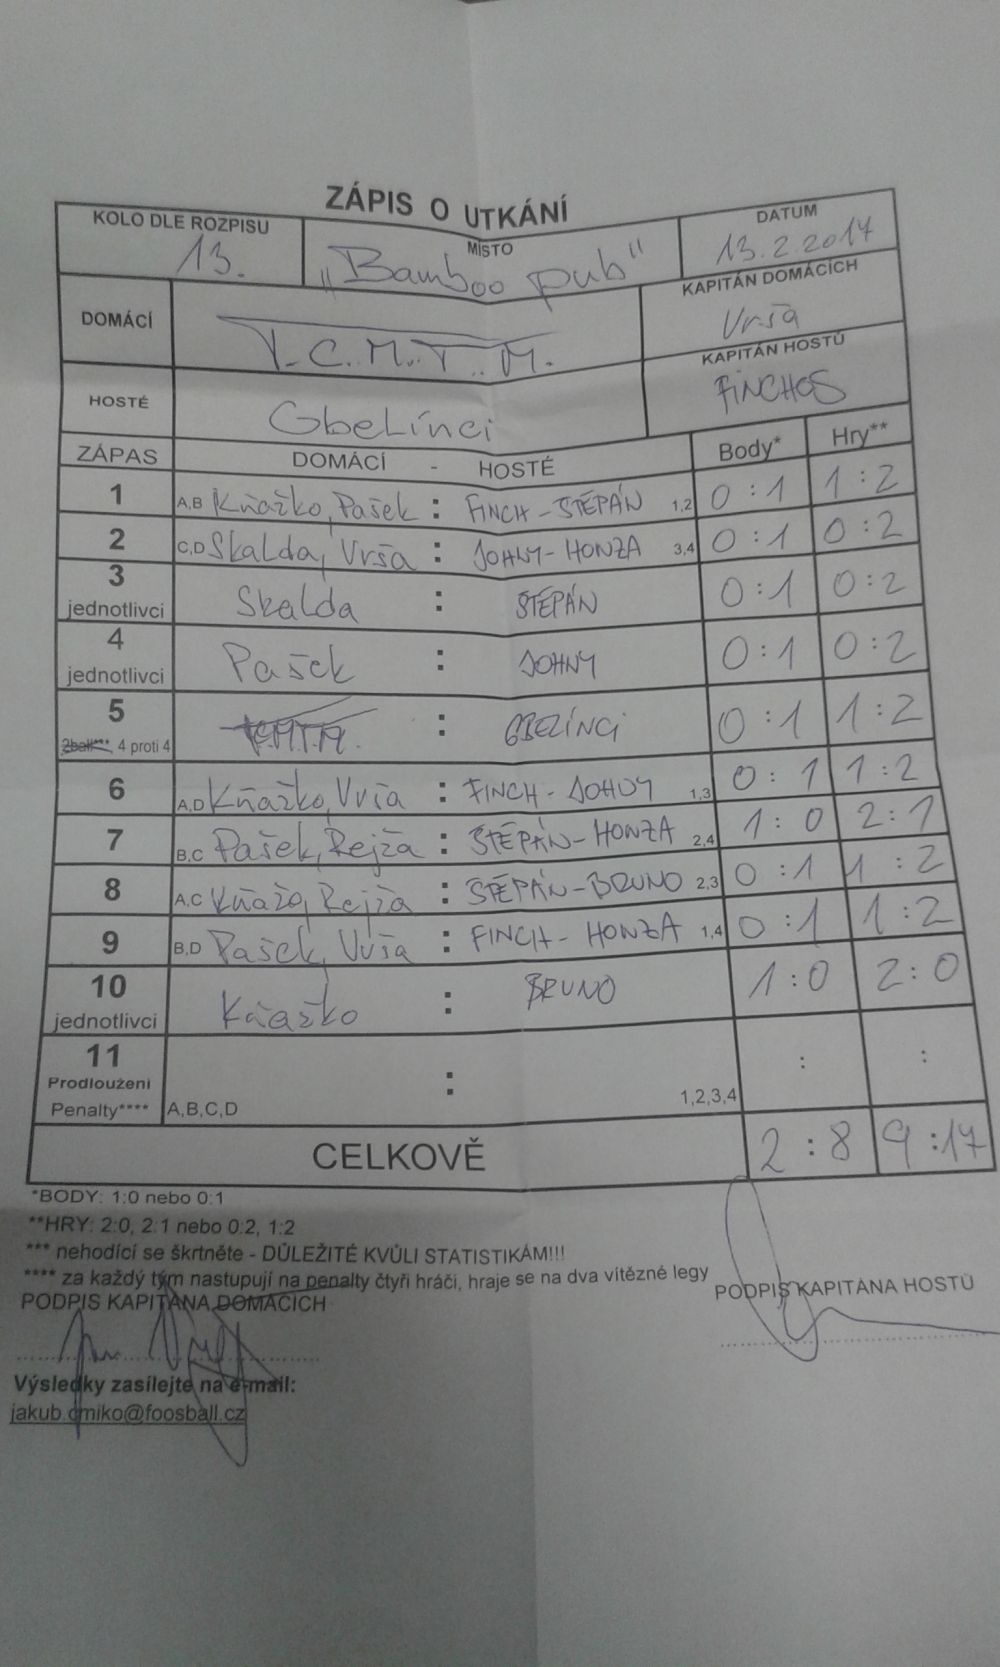 ZÁPIS O UTKÁNÍ
KOLO DLE ROZPISU
13.
MÍSTO
"Bamboo pub"
DATUM
13.2.2017
DOMÁCÍ
T.C.M.T.M.
KAPITÁN DOMÁCÍCH
Vrša
HOSTÉ
Gbelínci
KAPITÁN HOSTŮ
FINCHOS
ZÁPAS DOMÁCÍ - HOSTÉ Body* Hry**
1 A,B Kňažko, Pašek : FINCH - ŠTĚPÁN 1,2 0:1 1:2
2 C,D Skalda, Vrša : JOHNY-HONZA 3,4 0:1 0:2
3 jednotlivci Skalda : ŠTĚPÁN 0:1 0:2
4 jednotlivci Pašek : JOHNY 0:1 0:2
5 2ball*** 4 proti 4 : GBELÍNCI 0:1 1:2
6 A,D Kňažko, Vrša : FINCH - JOHNY 1,3 0:1 1:2
7 B,C Pašek, Rejža : ŠTĚPÁN-HONZA 2,4 1:0 2:1
8 A,C Kňažo, Rejža : ŠTĚPÁN-BRUNO 2,3 0:1 1:2
9 B,D Pašek, Vrša : FINCH - HONZA 1,4 0:1 1:2
10 jednotlivci Kňažko : BRUNO 1:0 2:0
11 Prodloužení Penalty**** A,B,C,D : 1,2,3,4 : :
CELKOVĚ 2:8 9:17
*BODY: 1:0 nebo 0:1
**HRY: 2:0, 2:1 nebo 0:2, 1:2
*** nehodící se škrtněte - DŮLEŽITÉ KVŮLI STATISTIKÁM!!!
**** za každý tým nastupují na penalty čtyři hráči, hraje se na dva vítězné legy
PODPIS KAPITÁNA DOMÁCÍCH
PODPIS KAPITÁNA HOSTŮ
Výsledky zasílejte na e-mail:
jakub.cmiko@foosball.cz